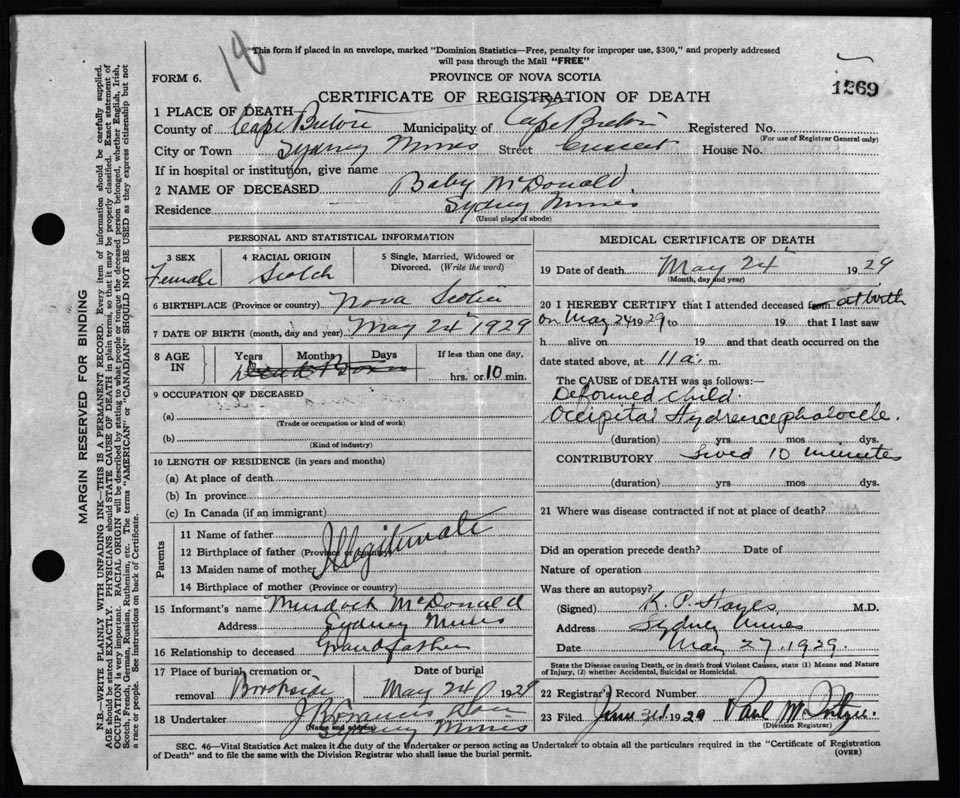 18
This form if placed in an envelope, marked "Dominion Statistics—Free, penalty for improper use, $300," and properly addressed
will pass through the Mail "FREE"
FORM 6.
PROVINCE OF NOVA SCOTIA
1269
CERTIFICATE OF REGISTRATION OF DEATH
1 PLACE OF DEATH
County of Cape Breton Municipality of Cape Breton Registered No.
(For use of Registrar General only)
City or Town Sydney Mines Street Crescent House No.
If in hospital or institution, give name
2 NAME OF DECEASED Baby McDonald.
Residence Sydney Mines
(Usual place of abode)
PERSONAL AND STATISTICAL INFORMATION
3 SEX Female
4 RACIAL ORIGIN Scotch
5 Single, Married, Widowed or Divorced. (Write the word)
6 BIRTHPLACE (Province or country) Nova Scotia
7 DATE OF BIRTH (month, day and year) May 24" 1929
8 AGE IN Years Months Days If less than one day,
hrs. or 10 min.
9 OCCUPATION OF DECEASED
(a)
(Trade or occupation or kind of work)
(b)
(Kind of industry)
10 LENGTH OF RESIDENCE (in years and months)
(a) At place of death
(b) In province
(c) In Canada (if an immigrant)
Parents
11 Name of father
12 Birthplace of father (Province or country)
Illegitimate
13 Maiden name of mother
14 Birthplace of mother (Province or country)
15 Informant's name Murdoch McDonald
Address Sydney Mines
16 Relationship to deceased Grandfather
17 Place of burial, cremation or removal Brookside
Date of burial May 24 1929
18 Undertaker J B Francis Son
(Name and address) Sydney Mines
MEDICAL CERTIFICATE OF DEATH
19 Date of death May 24" 1929
(Month, day and year)
20 I HEREBY CERTIFY that I attended deceased from at birth
on May 24 1929 to 19 that I last saw
h alive on 19 and that death occurred on the
date stated above, at 11 a. m.
The CAUSE of DEATH was as follows:—
Deformed child.
Occipital Hydrencephalocele.
(duration) yrs. mos. dys.
CONTRIBUTORY Lived 10 minutes
(duration) yrs. mos. dys.
21 Where was disease contracted if not at place of death?
Did an operation precede death? Date of
Nature of operation
Was there an autopsy?
(Signed) K. P. Hayes M.D.
Address Sydney Mines
Date May 27, 1929.
State the Disease causing Death, or in death from Violent Causes, state (1) Means and Nature
of Injury, (2) whether Accidental, Suicidal or Homicidal.
22 Registrar's Record Number
23 Filed June 3rd 1929 Paul
(Division Registrar)
SEC. 46—Vital Statistics Act makes it the duty of the Undertaker or person acting as Undertaker to obtain all the particulars required in the "Certificate of Registration
of Death" and to file the same with the Division Registrar who shall issue the burial permit.
(OVER)
MARGIN RESERVED FOR BINDING
N.B.—WRITE PLAINLY WITH UNFADING INK—THIS IS A PERMANENT RECORD. Every item of information should be carefully supplied.
AGE should be stated EXACTLY. PHYSICIANS should STATE CAUSE OF DEATH in plain terms, so that it may be properly classified. Exact statement of
OCCUPATION is very important. RACIAL ORIGIN will be described by stating to what people or tongue the deceased person belonged, whether English, Irish,
Scotch, French, German, Russian, Ruthenian, etc. The terms "AMERICAN" or "CANADIAN" SHOULD NOT BE USED as they express citizenship but not
a race or people. See instructions on back of Certificate.